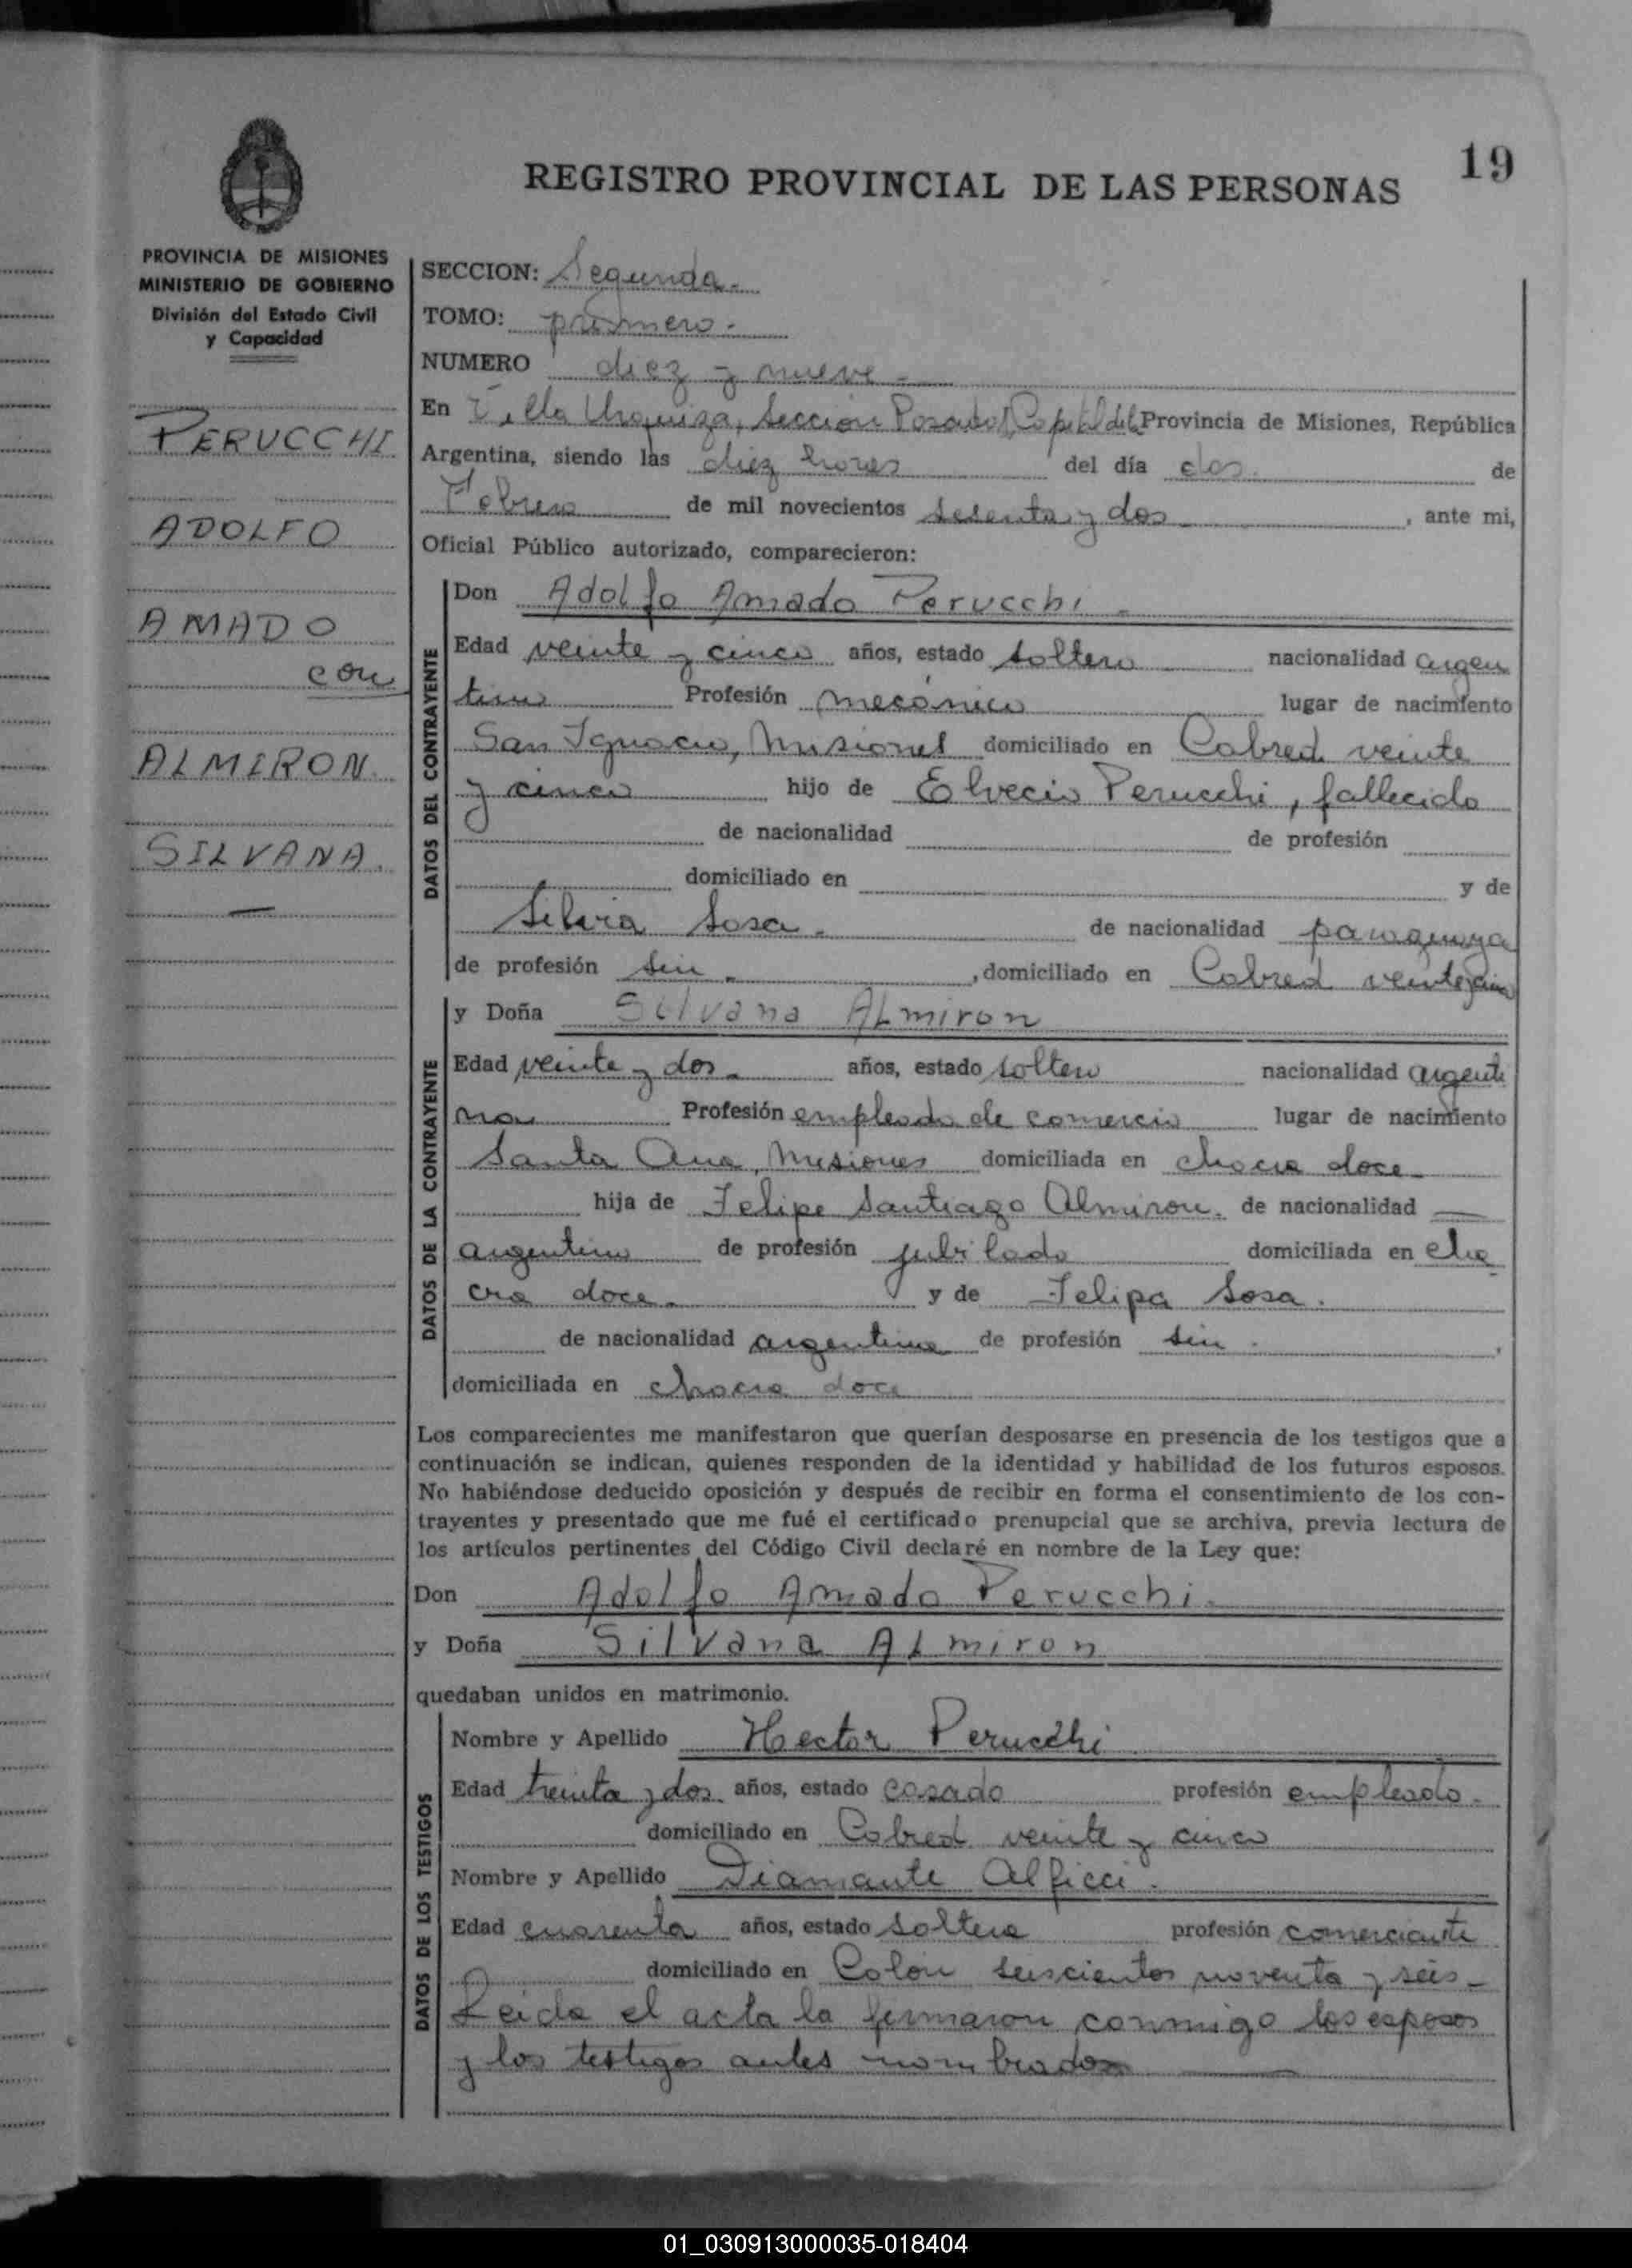 19
REGISTRO PROVINCIAL DE LAS PERSONAS
PROVINCIA DE MISIONES
MINISTERIO DE GOBIERNO
División del Estado Civil
y Capacidad
PERUCCHI
ADOLFO
AMADO
con
ALMIRON
SILVANA.
SECCION: Segunda.
TOMO: primero.
NUMERO diez y nueve
En Villa Urquiza, Sección Posadas, Capital de la Provincia de Misiones, República
Argentina, siendo las diez horas del día dos de
Febrero de mil novecientos sesenta y dos, ante mi,
Oficial Público autorizado, comparecieron:
DATOS DEL CONTRAYENTE
Don Adolfo Amado Perucchi.
Edad veinte y cinco años, estado soltero nacionalidad argen
tino Profesión mecánico lugar de nacimiento
San Ignacio, Misiones domiciliado en Cabred veinte
y cinco hijo de Elvecio Perucchi, fallecido
de nacionalidad de profesión
domiciliado en y de
Silvia Sosa. de nacionalidad paraguaya
de profesión sin, domiciliado en Cabred veinte y cinco
DATOS DE LA CONTRAYENTE
y Doña Silvana ALmiron
Edad veinte y dos años, estado soltera nacionalidad argenti
na Profesión empleada de comercio lugar de nacimiento
Santa Ana, Misiones domiciliada en chacra doce
hija de Felipe Santiago Almiron. de nacionalidad
argentino de profesión jubilado domiciliada en cha
cra doce. y de Felipa Sosa.
de nacionalidad argentina de profesión sin.
domiciliada en chacra doce
Los comparecientes me manifestaron que querían desposarse en presencia de los testigos que a
continuación se indican, quienes responden de la identidad y habilidad de los futuros esposos.
No habiéndose deducido oposición y después de recibir en forma el consentimiento de los con-
trayentes y presentado que me fué el certificado prenupcial que se archiva, previa lectura de
los artículos pertinentes del Código Civil declaré en nombre de la Ley que:
Don Adolfo Amado Perucchi.
y Doña Silvana ALmiron
quedaban unidos en matrimonio.
DATOS DE LOS TESTIGOS
Nombre y Apellido Hector Perucchi
Edad treinta y dos años, estado casado profesión empleado.
domiciliado en Cabred veinte y cinco
Nombre y Apellido Diamante Alficci.
Edad cuarenta años, estado soltera profesión comerciante
domiciliado en Colón seiscientos noventa y seis
Leida el acta la firmaron conmigo los esposos
y los testigos antes nombrados
01_030913000035-018404